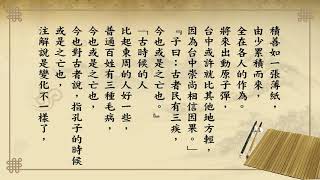 積善如一張薄紙,
由少累積而來,
全在各人的作為。
將來出動原子彈,
台中或許就比其他地方輕,
因為台中崇尚相信因果。」
『子曰:古者民有三疾,
今也或是之亡也。』
「古時候的人
比起東周的人好一些,
普通百姓有三種毛病,
今也或是之亡也,
今也對古者說,指孔子的時候
或是之亡也,
注解說是變化不一樣了,